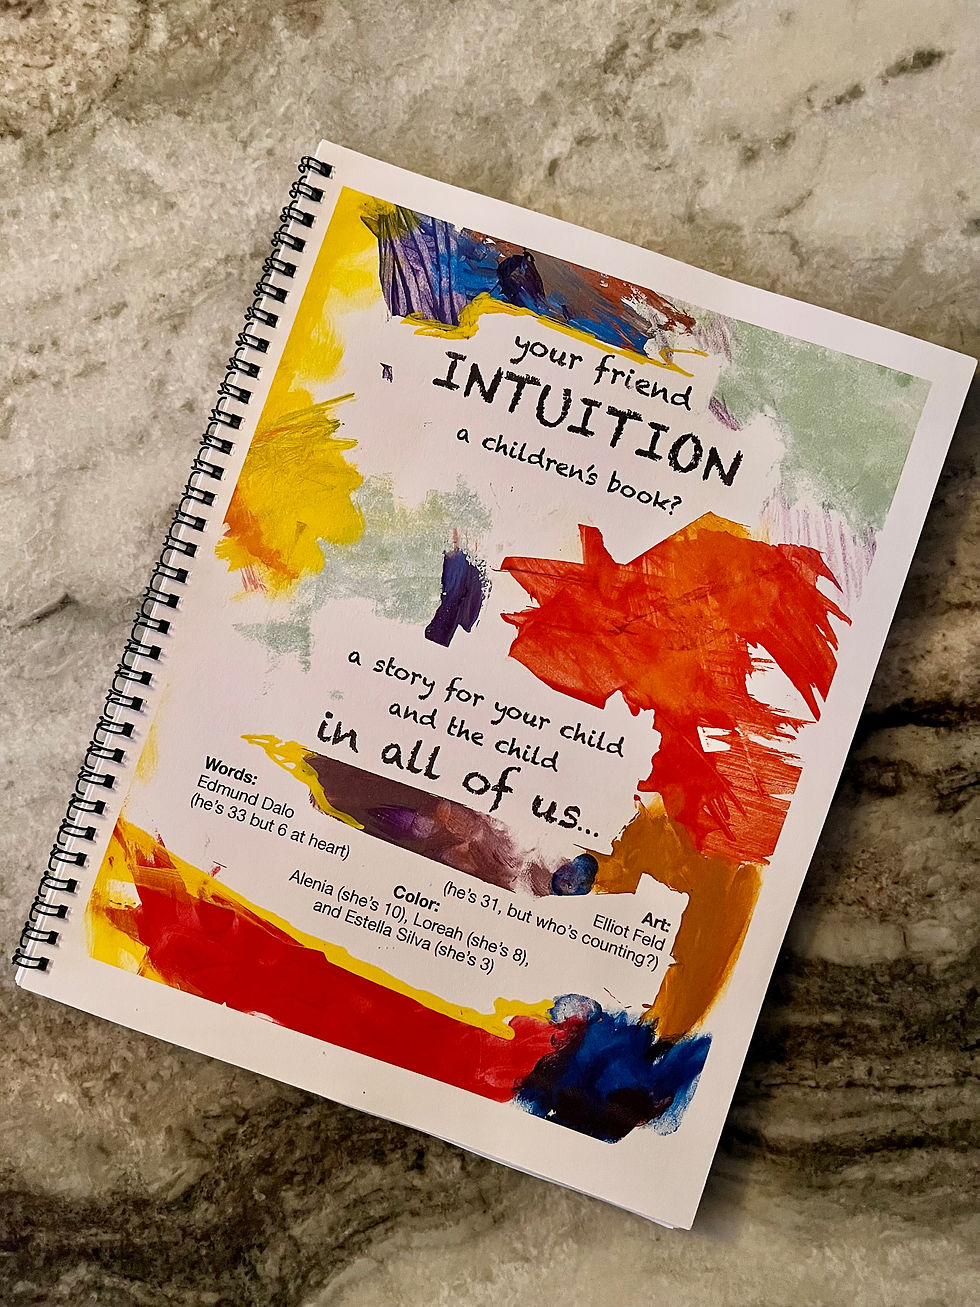 your friend
INTUITION
a children's book?
a story for your child
and the child
in all of us...
Words:
Edmund Dalo
(he's 33 but 6 at heart)
Color:
Alenia (she's 10), Loreah (she's 8),
and Estella Silva (she's 3)
Art:
Elliot Feld
(he's 31, but who's counting?)